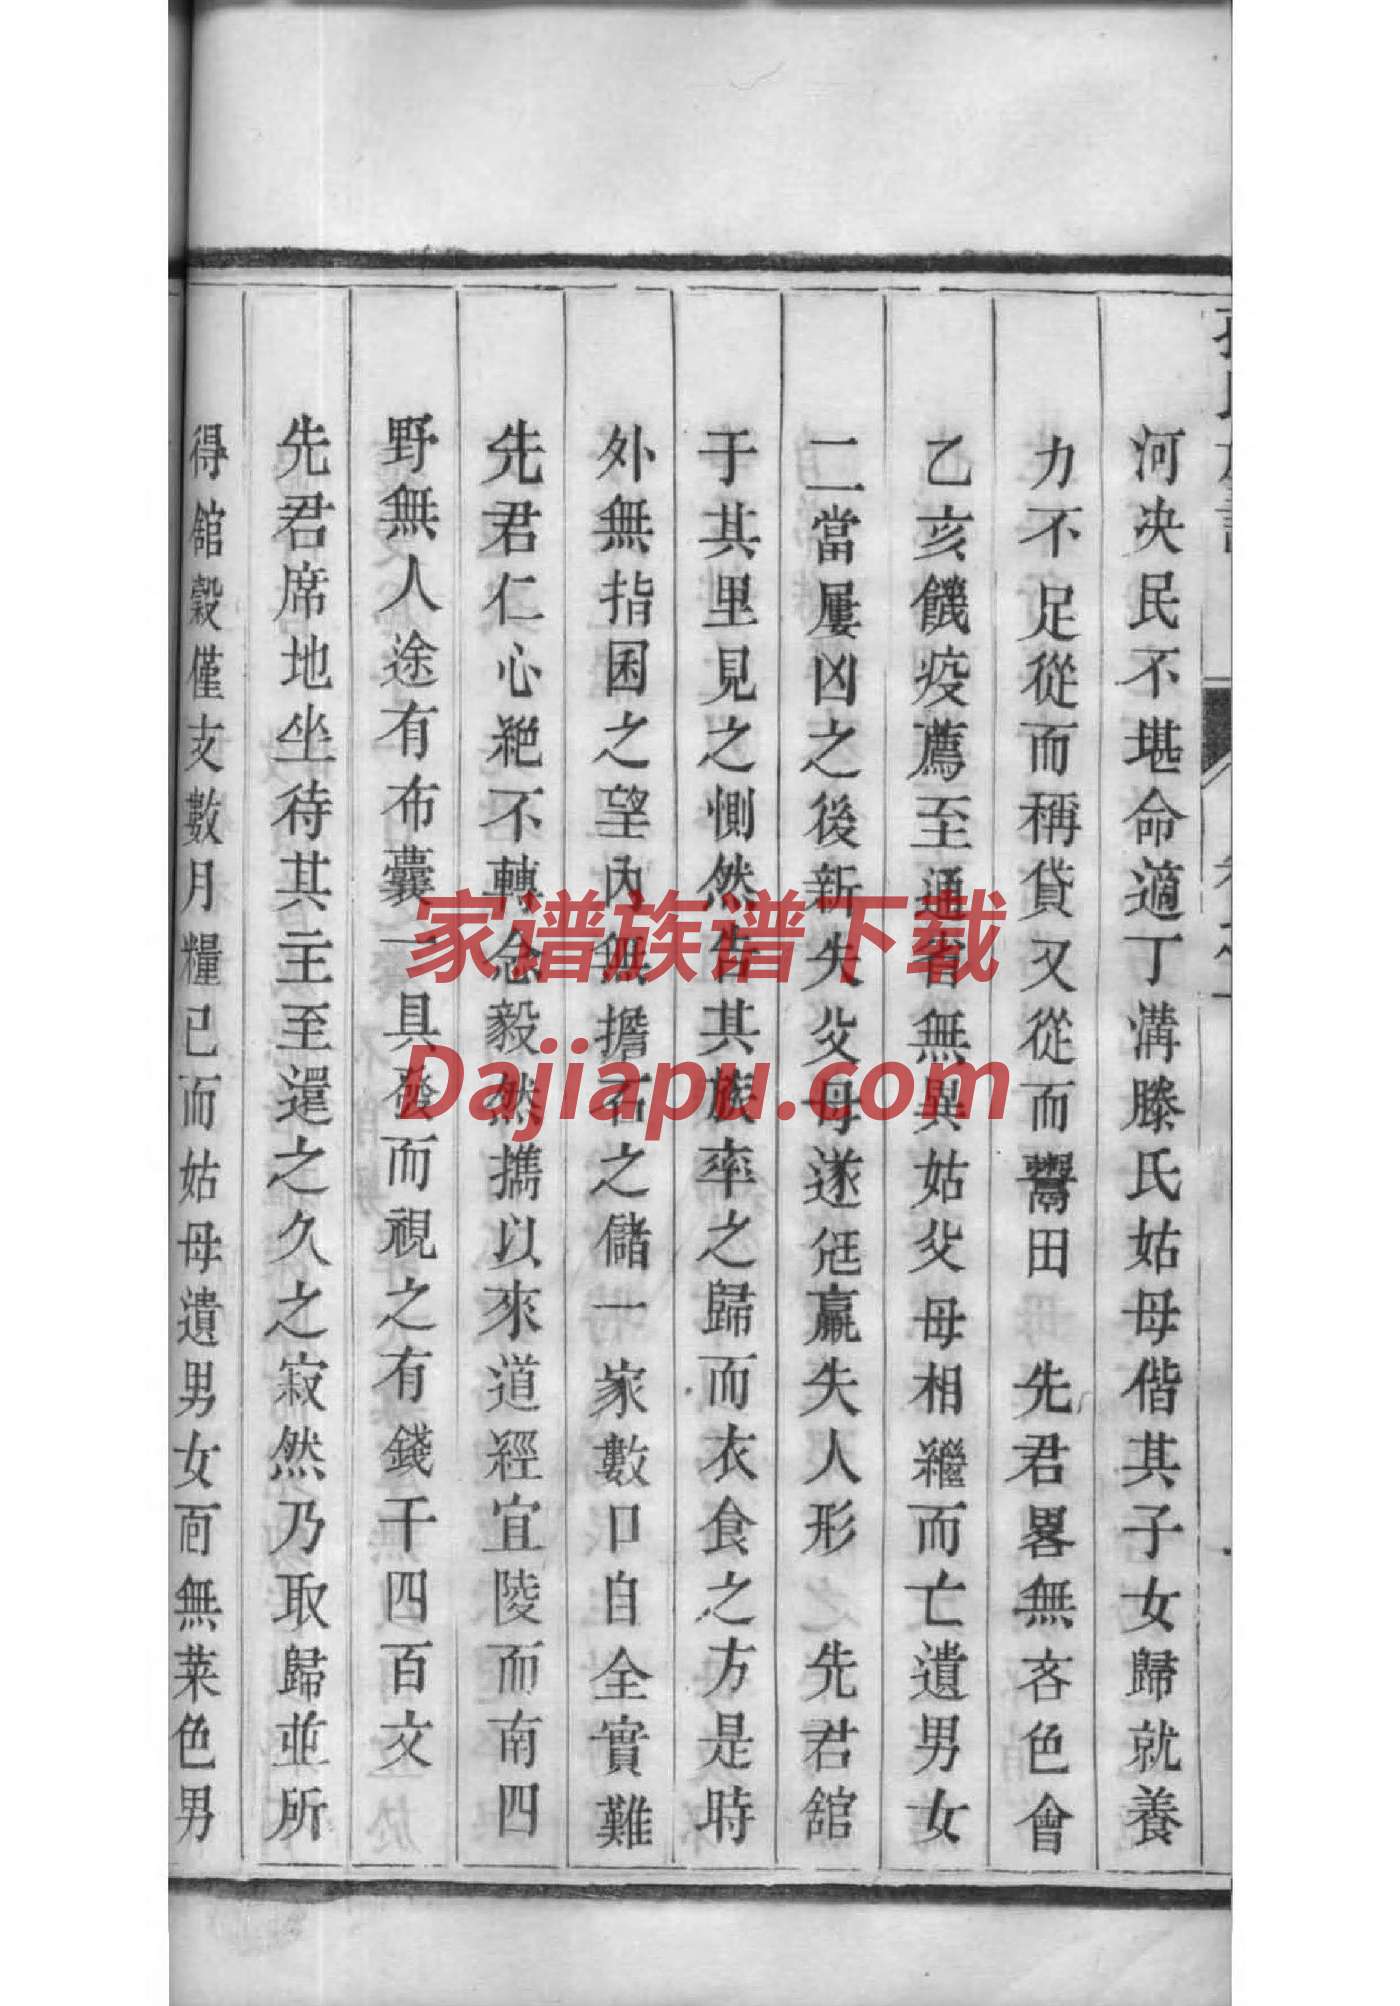 河決民不堪命適丁溝滕氏姑母偕其子女歸就養
力不足從而稱貸又從而鬻田 先君畧無吝色會
乙亥饑疫薦至通省無異姑父母相繼而亡遺男女
二當屢凶之後新失父母遂尫羸失人形 先君舘
于其里見之惻然告其族率之歸而衣食之方是時
外無指囷之望內無擔石之儲一家數口自全實難
先君仁心絕不轉念毅然攜以來道經宜陵而南四
野無人途有布囊一具發而視之有錢千四百文
先君席地坐待其主至還之久之寂然乃取歸並所
得舘穀僅支數月糧已而姑母遺男女面無菜色男
家谱族谱下载
Dajiapu.com